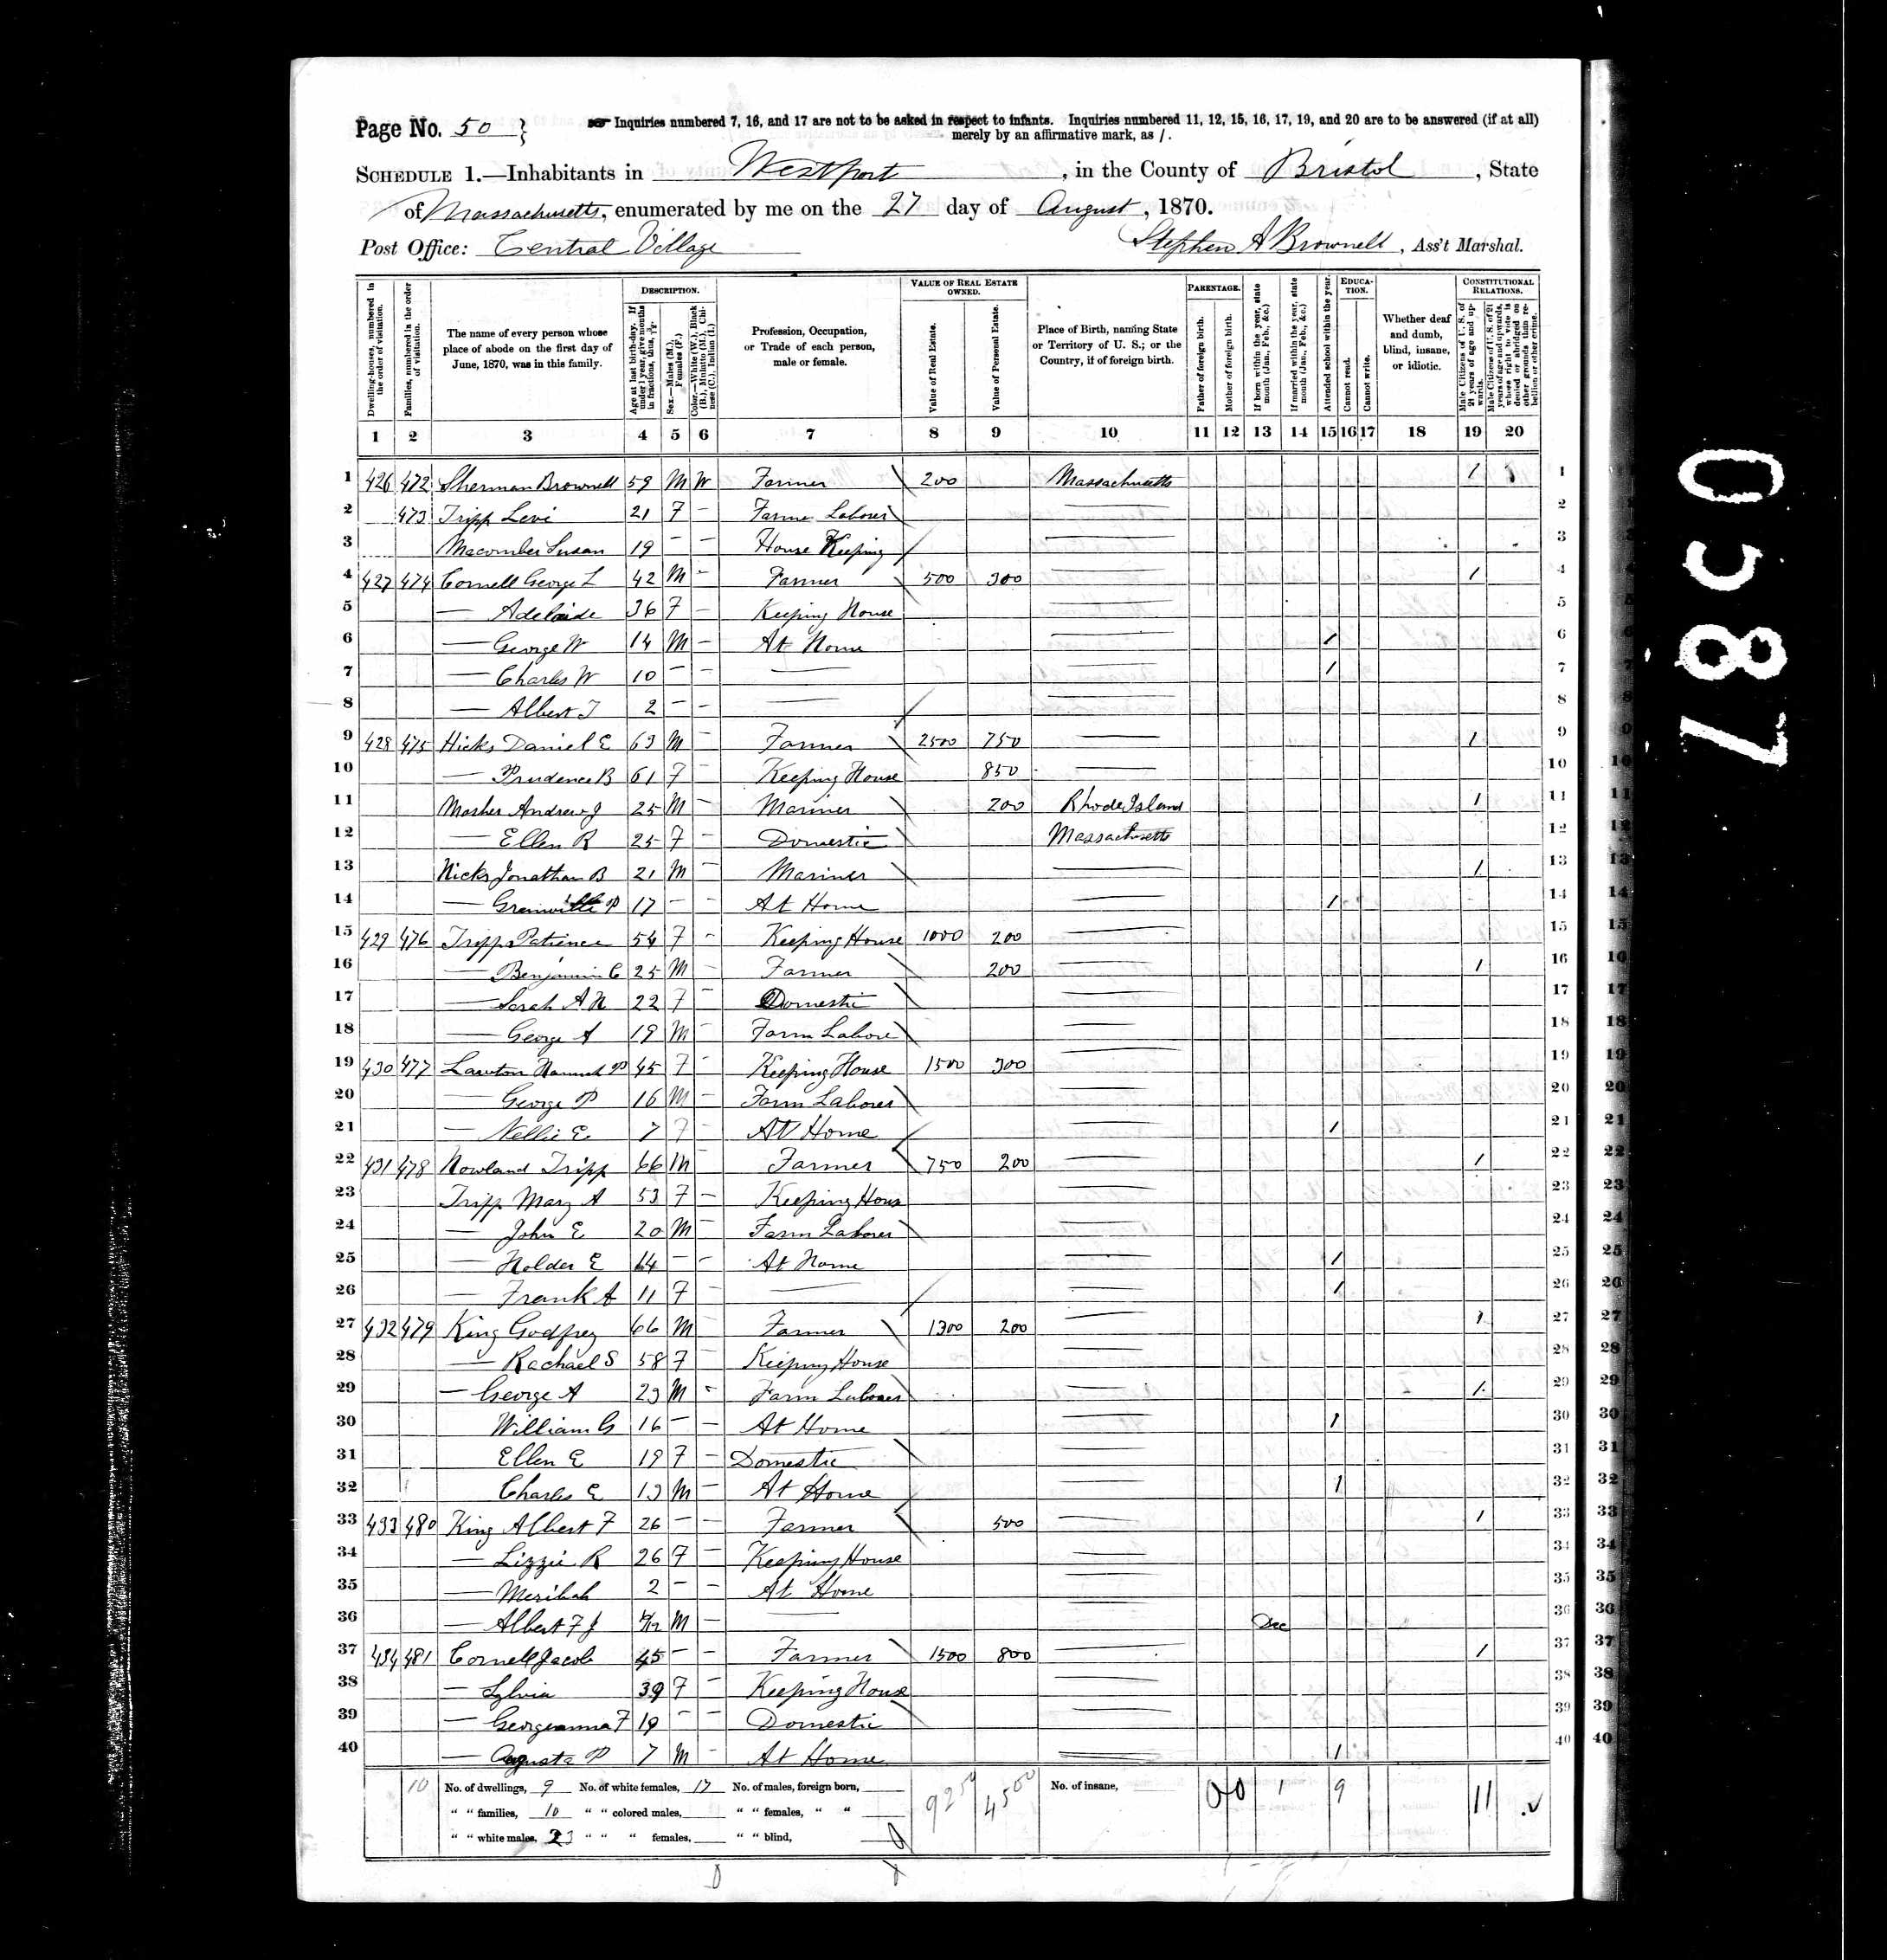 Page No. 50 }
Inquiries numbered 7, 16, and 17 are not to be asked in respect to infants. Inquiries numbered 11, 12, 15, 16, 17, 19, and 20 are to be answered (if at all)
merely by an affirmative mark, as /.
SCHEDULE 1.—Inhabitants in Westport, in the County of Bristol, State
of Massachusetts, enumerated by me on the 27 day of August, 1870.
Post Office: Central Village Stephen A Brownell, Ass't Marshal.
Dwelling-houses, numbered in the order of visitation.
Families, numbered in the order of visitation.
The name of every person whose place of abode on the first day of June, 1870, was in this family.
DESCRIPTION.
Age at last birth-day. If under 1 year, give months in fractions, thus, 3/12.
Sex.—Males (M.), Females (F.)
Color.—White (W.), Black (B.), Mulatto (M.), Chinese (C.), Indian (I.)
Profession, Occupation, or Trade of each person, male or female.
VALUE OF REAL ESTATE OWNED.
Value of Real Estate.
Value of Personal Estate.
Place of Birth, naming State or Territory of U. S.; or the Country, if of foreign birth.
PARENTAGE.
Father of foreign birth.
Mother of foreign birth.
If born within the year, state month (Jan., Feb., &c.)
If married within the year, state month (Jan., Feb., &c.)
Attended school within the year.
EDUCATION.
Cannot read.
Cannot write.
Whether deaf and dumb, blind, insane, or idiotic.
CONSTITUTIONAL RELATIONS.
Male Citizens of U. S. of 21 years of age and upwards.
Male Citizens of U. S. of 21 years of age and upwards, whose right to vote is denied or abridged on other grounds than rebellion or other crime.
1 2 3 4 5 6 7 8 9 10 11 12 13 14 15 16 17 18 19 20
1 426 472 Sherman Brownell 59 M W Farmer 200 Massachusetts / 1
2 473 Tripp Levi 21 F – Farme Laborer — 2
3 Macomber Susan 19 – – House Keeping — 3
4 427 474 Cornell George L 42 M – Farmer 500 300 — / 4
5 — Adelaide 36 F – Keeping House — 5
6 — George W 14 M – At Home — / 6
7 — Charles W 10 – – — — / 7
8 — Albert T 2 – – — — 8
9 428 475 Hicks Daniel E 63 M – Farmer 2500 750 — / 9
10 — Prudence B 61 F – Keeping House 850 — 10
11 Mosher Andrew J 25 M – Mariner 200 Rhode Island / 11
12 — Ellen R 25 F – Domestic Massachusetts 12
13 Hicks Jonathan B 21 M – Mariner — / 13
14 — Grenville P 17 – – At Home — / 14
15 429 476 Tripp Patience 54 F – Keeping House 1000 200 — 15
16 — Benjamin C 25 M – Farmer 200 — / 16
17 — Sarah A H 22 F – Domestic — 17
18 — George A 19 M – Farm Labore — 18
19 430 477 Lawton Hannah P 45 F – Keeping House 1500 300 — 19
20 — George P 16 M – Farm Laborer — 20
21 — Nellie E 7 F – At Home — / 21
22 431 478 Howland Tripp 66 M Farmer 750 200 — / 22
23 Tripp Mary A 53 F – Keeping Hous — 23
24 — John E 20 M – Farm Laborer — 24
25 — Holder E 14 – – At Home — / 25
26 — Frank A 11 F – — — / 26
27 432 479 King Godfrey 66 M – Farmer 1300 200 — / 27
28 — Rachael S 58 F – Keeping House — 28
29 — George A 23 M – Farm Laborer — / 29
30 William G 16 – – At Home — / 30
31 Ellen E 19 F – Domestic — 31
32 Charles E 13 M – At Home — / 32
33 433 480 King Albert F 26 – – Farmer 500 — / 33
34 — Lizzie R 26 F – Keeping House — 34
35 — Meribah 2 – – At Home — 35
36 — Albert F J M – — — Dec 36
37 434 481 Cornell Jacob 45 – – Farmer 1500 800 — / 37
38 — Sylvia 39 F – Keeping House — 38
39 — Georgeanna F 19 – – Domestic — 39
40 — Augusta P 7 M – At Home — / 40
10 No. of dwellings, 9 No. of white females, 17 No. of males, foreign born, 9250 4500 No. of insane, 0 0 1 9 11
" " families, 10 " " colored males, " " females, " "
" " white males, 23 " " " females, " " blind,
0587